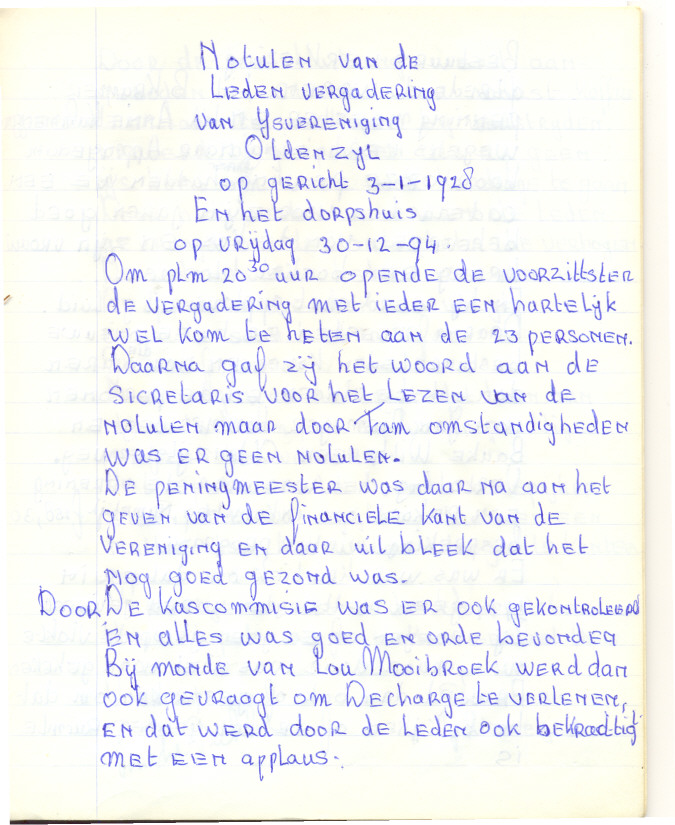 Notulen van de
Leden vergadering
van IJsvereniging
Oldenzijl
opgericht 3-1-1928
En het dorpshuis
op vrijdag 30-12-94.
Om plm 20³⁰ uur opende de voorzittster
de vergadering met ieder een hartelijk
wel kom te heten aan de 23 personen.
Daarna gaf zij het woord aan de
sicretaris voor het lezen van de
notulen maar door fam omstandigheden
was er geen notulen.
De peningmeester was daar na aan het
geven van de financiele kant van de
vereniging en daar uit bleek dat het
nog goed gezond was.
Door De kascommisie was er ook gekontroleerd
en alles was goed en orde bevonden
Bij monde van Lou Mooibroek werd dan
ook gevraagt om Decharge te verlenen,
en dat werd door de leden ook bekradtig
met een applaus.